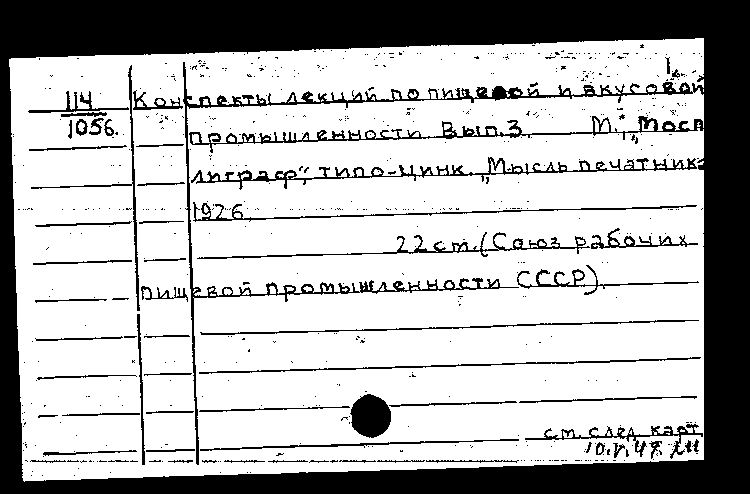 1.
114
1056.
Конспекты лекций по пищевой и вкусовой
промышленности Вып.3. М., "Мосп
лиграф", типо-цинк. "Мысль печатника
1926
22 cm. (Союз рабочих
пищевой промышленности СССР).
см. след. карт.
10.V.47.